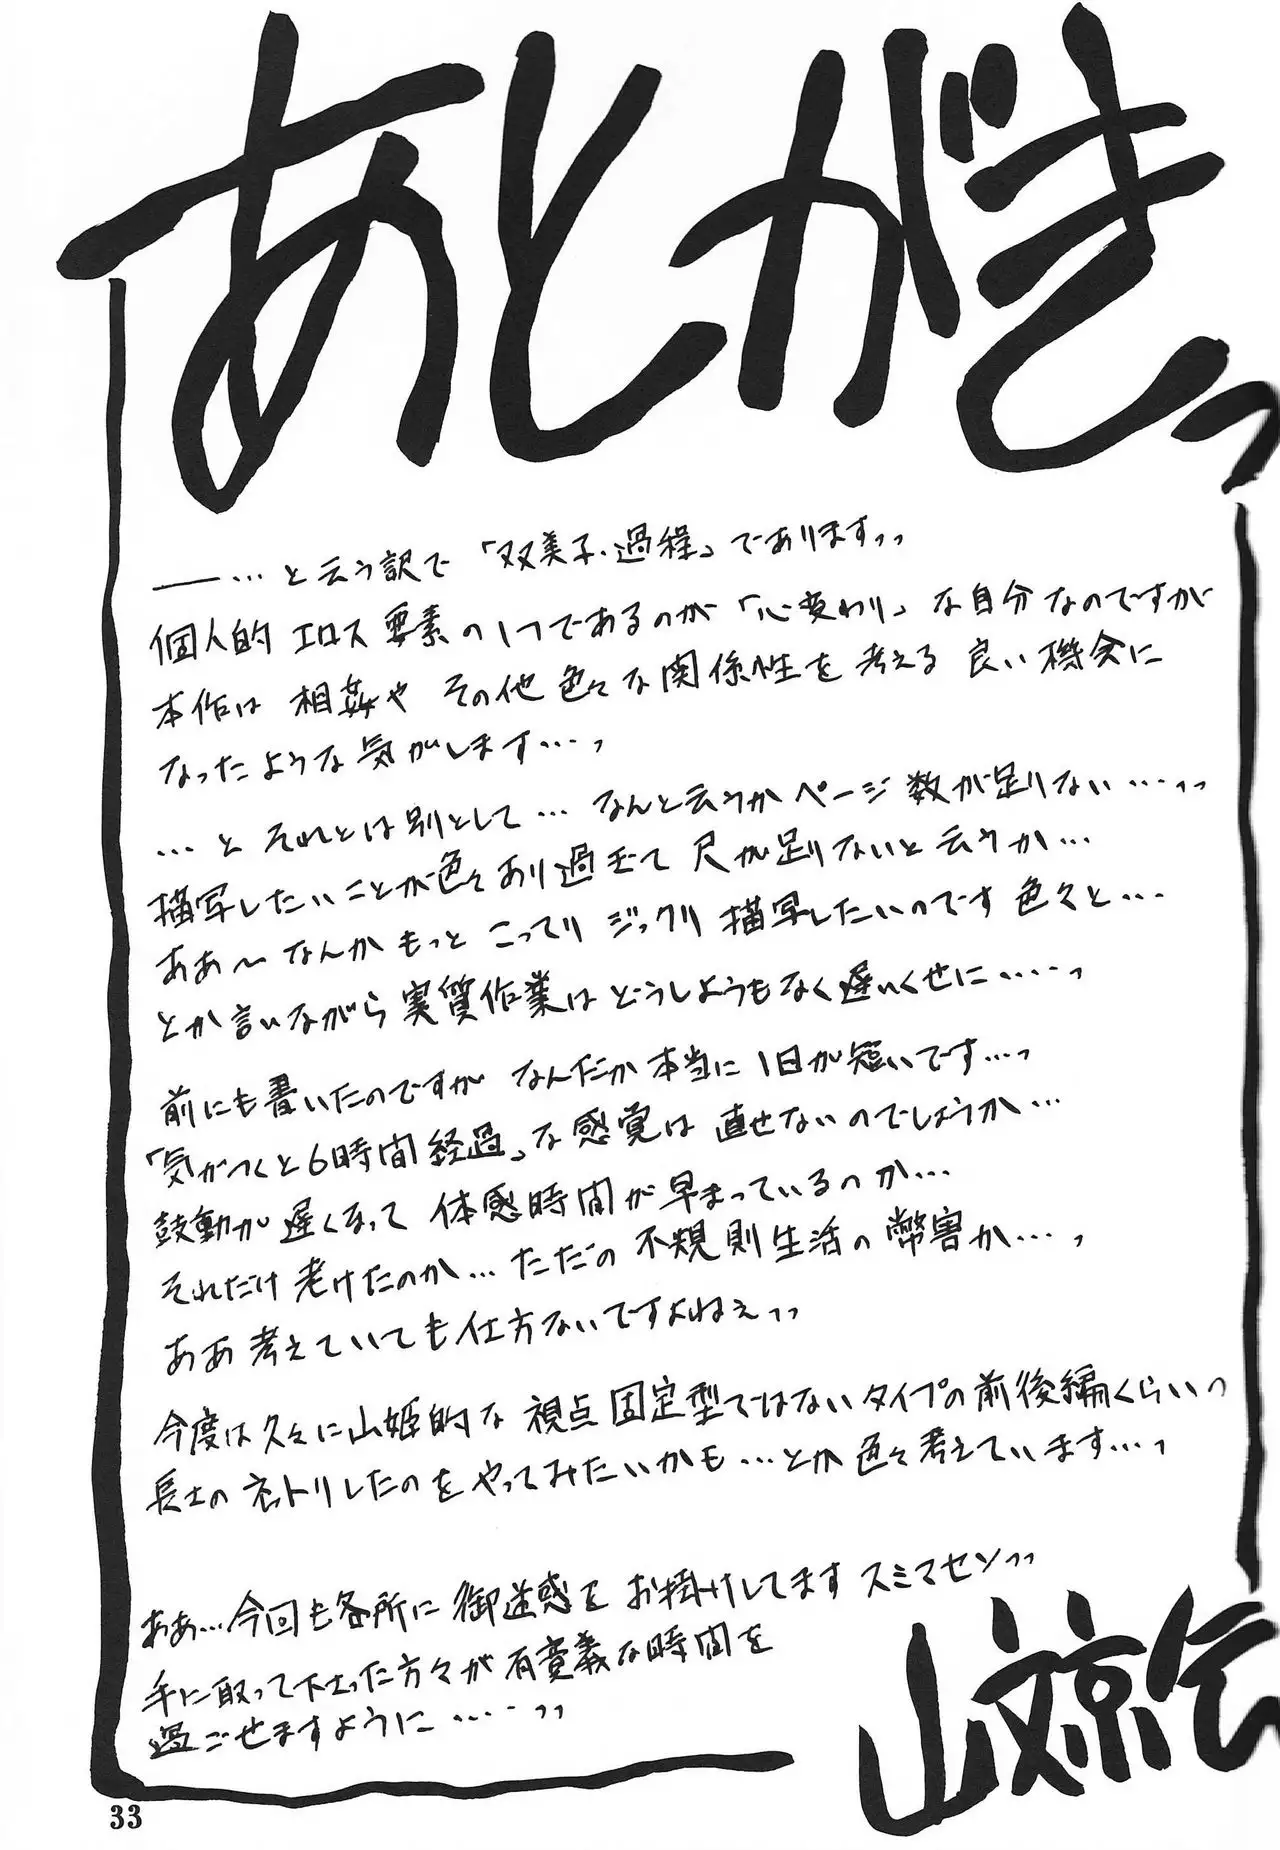 あとがきっ
――…と云う訳で「双美子・過程」でありますッッ
個人的エロス要素の1つであるのが「心変わり」な自分なのですが
本作は相姦やその他色々な関係性を考える良い機会に
なったような気がします…っ
…とそれとは別として…なんと云うかページ数が足りない…ッッ
描写したいことが色々あり過ぎて尺が足りないと云うか…
ああ〜なんかもっとこってりジックリ描写したいのです色々と…
とか言いながら実質作業はどうしようもなく遅いくせに……っ
前にも書いたのですがなんだか本当に1日が短いです…っ
「気がつくと6時間経過」な感覚は直せないのでしょうか…
鼓動が遅くなって体感時間が早まっているのか…
それだけ老けたのか…ただの不規則生活の弊害か…っ
ああ考えていても仕方ないですよねぇッッ
今度は久々に山姫的な視点固定型ではないタイプの前後編くらいっ
長士のネットリしたのをやってみたいかも…とか色々考えています…っ
ああ…今回も各所に御迷惑をお掛けしてますスミマセンッッ
手に取って下さった方々が有意義な時間を
過ごせますように……ッッ
山文京伝
33